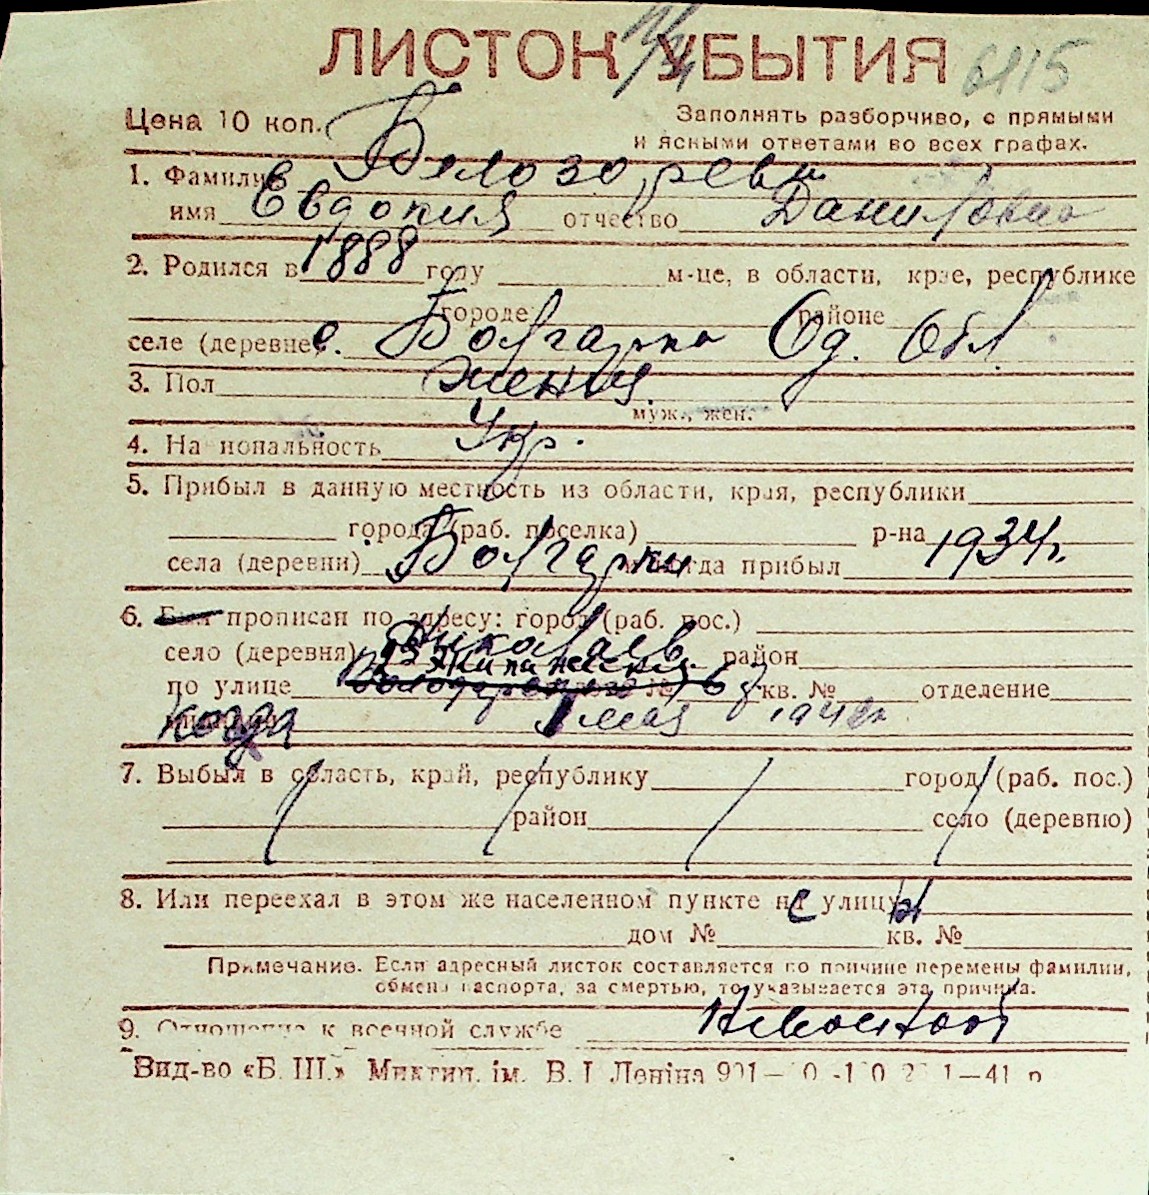 ЛИСТОК УБЫТИЯ 6115
Цена 10 коп.
Заполнять разборчиво, с прямыми
и ясными ответами во всех графах.
1. Фамилия Белозорева
имя Евдокия отчество Даниловна
2. Родился в 1888 году м-це, в области, крае, республике
городе районе
селе (деревне) с. Болгарка Од. Обл
3. Пол женщ.
муж., жен.
4. Национальность Укр.
5. Прибыл в данную местность из области, края, республики
города (раб. поселка) р-на
села (деревни) Болгарки когда прибыл 1934 г.
6. Был прописан по адресу: город (раб. пос.)
село (деревня) Николаев район
по улице № 67 кв. № отделение
когда 1 мая
7. Выбыл в область, край, республику город (раб. пос.)
район село (деревню)
8. Или переехал в этом же населенном пункте на улицу
дом № кв. №
Примечание. Если адресный листок составляется по причине перемены фамилии,
обмена паспорта, за смертью, то указывается эта причина.
9. Отношение к военной службе
Вид-во «Б. Ш.» Миктип. ім. В. І Леніна